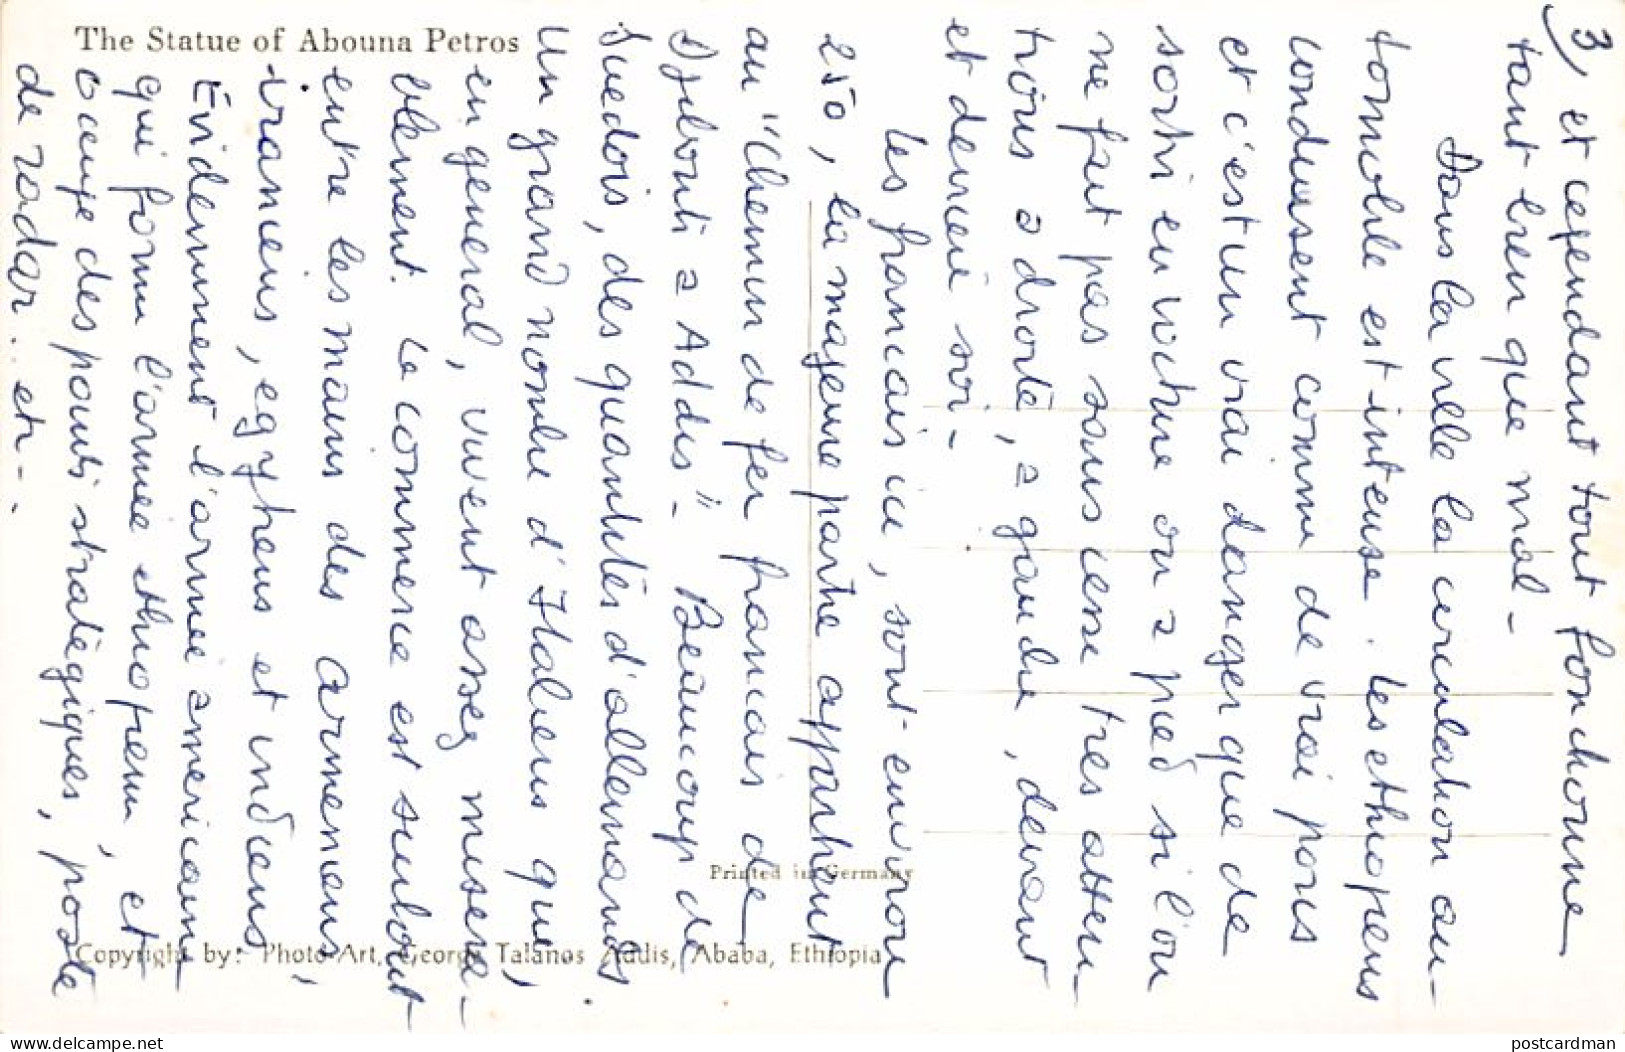 The Statue of Abouna Petros
3) et cependant tout fonctionne
tant bien que mal -
Dans la ville la circulation au-
tomobile est intense. Les ethiopiens
conduisent comme de vrai pours
et c'est un vrai danger que de
sortir en voiture ou à pied si l'on
ne fait pas sans cesse tres atten-
tions à droite, à gauche, devant
et derrière soi -
Les francais ici, sont environ
250, la majeure partie appartient
au "Chemin de fer francais de
Djibouti à Addis" - Beaucoup de
Suedois, des quantités d'allemands.
Un grand nombre d'Italiens qui,
en general, vivent assez misera-
blement. Le commerce est surtout
entre les mains des armeniens,
iraniens, egyptiens et indiens
Évidemment l'armée americaine
qui forme l'armée ethiopienn, et
occupe des points stratégiques, poste
de radar... etc - -
Printed in Germany
Copyright by: Photo-Art, George Talanos Addis, Ababa, Ethiopia
delcampe.net
postcardman